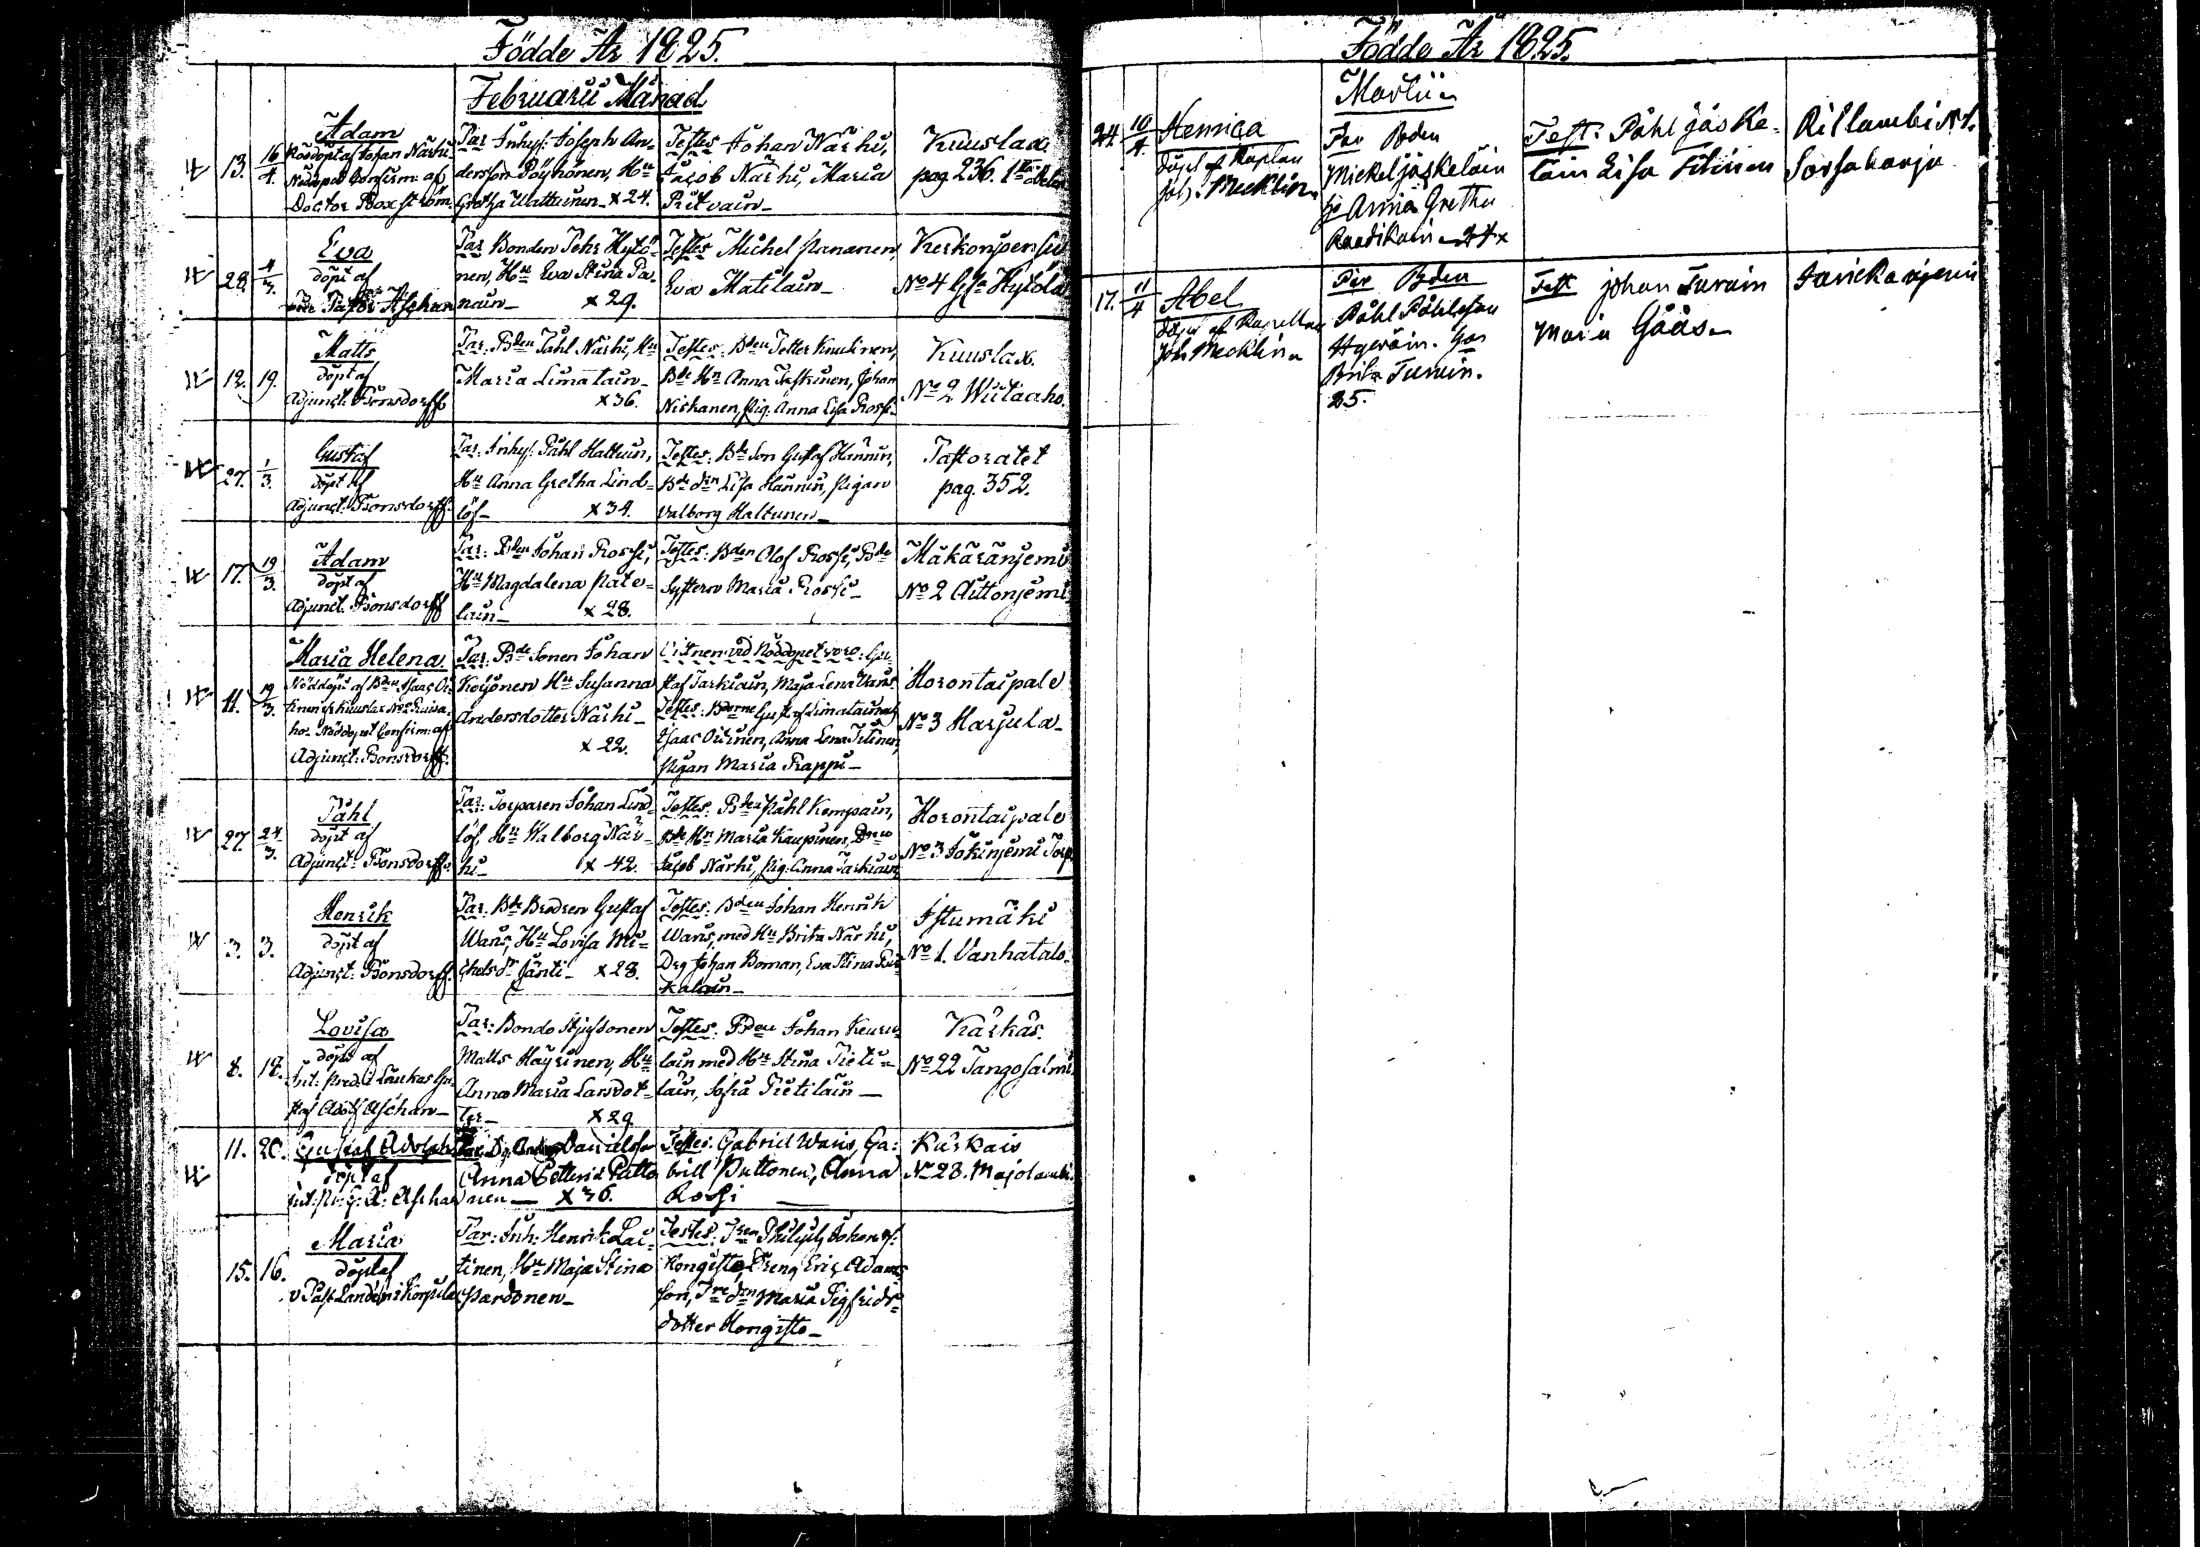 Födde År 1825.
Februarii Månad
13. 16/4. Adam
Nöddöpt af Johan Närhi.
Nöddopet Confirm: af
Doctor Boxström.
Par Inhys: Joseph An-
dersson Pöyhönen, Hu
Gretha Wattuinen x 24.
Testes Johan Närhi,
Jacob Närhi, Maria
Pitvain
Kuuslax
pag 236.
28. 4/3. Eva
döpt af
Aschan
Par Bonden Pehr Hytö-
nen, Hu Eva Stina Pa-
nain x 29.
Testes Michel Pananen,
Eva Matilain
Kerkonjensu
No 4 Hytölä
12. 19. Matts
döpt af
Adjunct: Bonsdorff
Par: Bden Påhl Närhi, Hu
Maria Limatain
x 36.
Testes: Bden Petter Knuutinen,
Bde Hn Anna Paskinen, Johan
Niskanen, Pig: Anna Lisa Rossi
Kuuslax.
No 2 Wiitaaho.
27. 1/3. Gustaf
döpt af
Adjunct: Bonsdorff
Par: Inhys: Påhl Haltuin,
Hu Anna Gretha Lind-
löf x 34.
Testes: Bde Son Gustaf Hännin,
Bde dn Lisa Hännin, Pigan
Valborg Haltunen
Pastoratet
pag. 352.
17. 19/3. Adam
döpt af
Adjunct. Bonsdorff
Par: Bden Johan Rossi,
Hu Magdalena Pate-
lain x 28.
Testes: Bden Olof Rossi, Bde
Systern Maria Rossi
Makaränjemi
No 2 Aittonjemi
11. 19/3. Maria Helena.
Nöddöpt af Bden Isaac Oi-
tinen af Kuuslax No 2
Nöddopet Confirm: af
Adjunct: Bonsdorff.
Par: Bde Sonen Johan
Koljonen Hu Susanna
Andersdotter Närhi
x 22.
Vitnen vid Nöddopet voro: Gu-
staf Tarkiain, Maja Lena Varis.
Testes: Bderne Gustaf Limatain
Isaac Oitinen, Anna Lena Titinen,
Pigan Maria Rappi
Horontaipale
No 3 Harjula
27. 24/3. Påhl
döpt af
Adjunct: Bonsdorff
Par: Torparen Johan Lind-
löf, Hu Walborg När-
hi x 42.
Testes: Bden Påhl Kempain,
Bde Hn Maria Kaupinen,
Jacob Närhi, Pig: Anna Tarkiain
Horontaipale
No 3 Jokinjemi Torp
3. 3. Henrik
döpt af
Adjunct: Bonsdorff.
Par: Bde Brodren Gustaf
Waris, Hu Lovisa Mi-
chels dr Jänti x 28.
Testes: Bden Johan Henrik
Waris, med Hu Brita Närhi,
Dng Johan Boman, Eva Stina
kalain
Istumäki
No 1. Vanhatalo.
8. 18. Lovisa
döpt af
Int: Pred: i Laukas Gu-
staf Adolf Aschan
Par: Bonde Stjufsonen
Matts Häyrinen, Hu
Anna Maria Larsdot-
ter x 29
Testes: Bden Johan Keuru-
lain med Hu Stina Pieti-
läin, Sofia Pietiläin
Kärkäs.
No 22 Tangosalmi
11. 20. Gustaf Adolph
döpt af
Int: Pr: G: A: Aschan
Danielson
Anna Petters d Putto
nen x 36.
Testes: Gabriel Waris, Ga:
briel Puttonen, Anna
Rossi
Kärkais
No 28. Majolambi
15. 16. Maria
döpt af
v Past Landen i Korpilax
Par: Inh: Henrik Lai-
tinen, Hu Maja Stina
Pardonen
Testes: Philip Johan
Hongisto, Dreng Eric Adams
son, Maria Sigfrids
dotter Hongisto
Födde År 1825.
Martii
24. 10/4. Henrica
döpt af Kaplan
Joh: Mecklin
Far Bden
Mickel Jäskeläin
Anna Gretha
Raudikain 24 x
Test: Påhl Jäske-
läin Lisa Titinen
Killambi N 1.
Sorsaharju
17. 11/4 Abel
döpt af Kapellan
Joh Mecklin
Far Bden
Påhl Påhlsson
Hyeväin.
Brita Turuin.
25.
Test Johan Turuin
Maria Gåås